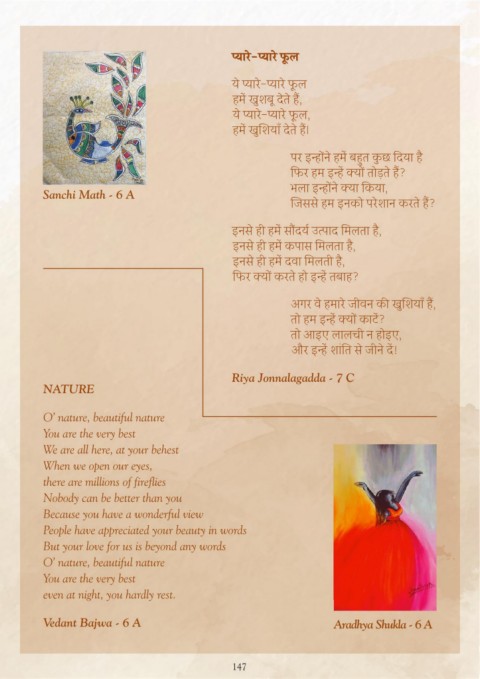 Sanchi Math - 6 A
प्यारे-प्यारे फूल
ये प्यारे-प्यारे फूल
हमें खुशबू देते हैं,
ये प्यारे-प्यारे फूल,
हमें खुशियाँ देते हैं।
पर इन्होंने हमें बहुत कुछ दिया है
फिर हम इन्हें क्यों तोड़ते हैं?
भला इन्होंने क्या किया,
जिससे हम इनको परेशान करते हैं?
इनसे ही हमें सौंदर्य उत्पाद मिलता है,
इनसे ही हमें कपास मिलता है,
इनसे ही हमें दवा मिलती है,
फिर क्यों करते हो इन्हें तबाह?
अगर ये हमारे जीवन की खुशियाँ हैं,
तो हम इन्हें क्यों काटें?
तो आइए लालची न होइए,
और इन्हें शांति से जीने दें।
Riya Jonnalagadda - 7 C
NATURE
O' nature, beautiful nature
You are the very best
We are all here, at your behest
When we open our eyes,
there are millions of fireflies
Nobody can be better than you
Because you have a wonderful view
People have appreciated your beauty in words
But your love for us is beyond any words
O' nature, beautiful nature
You are the very best
even at night, you hardly rest.
Vedant Bajwa - 6 A
Aradhya Shukla - 6 A
147